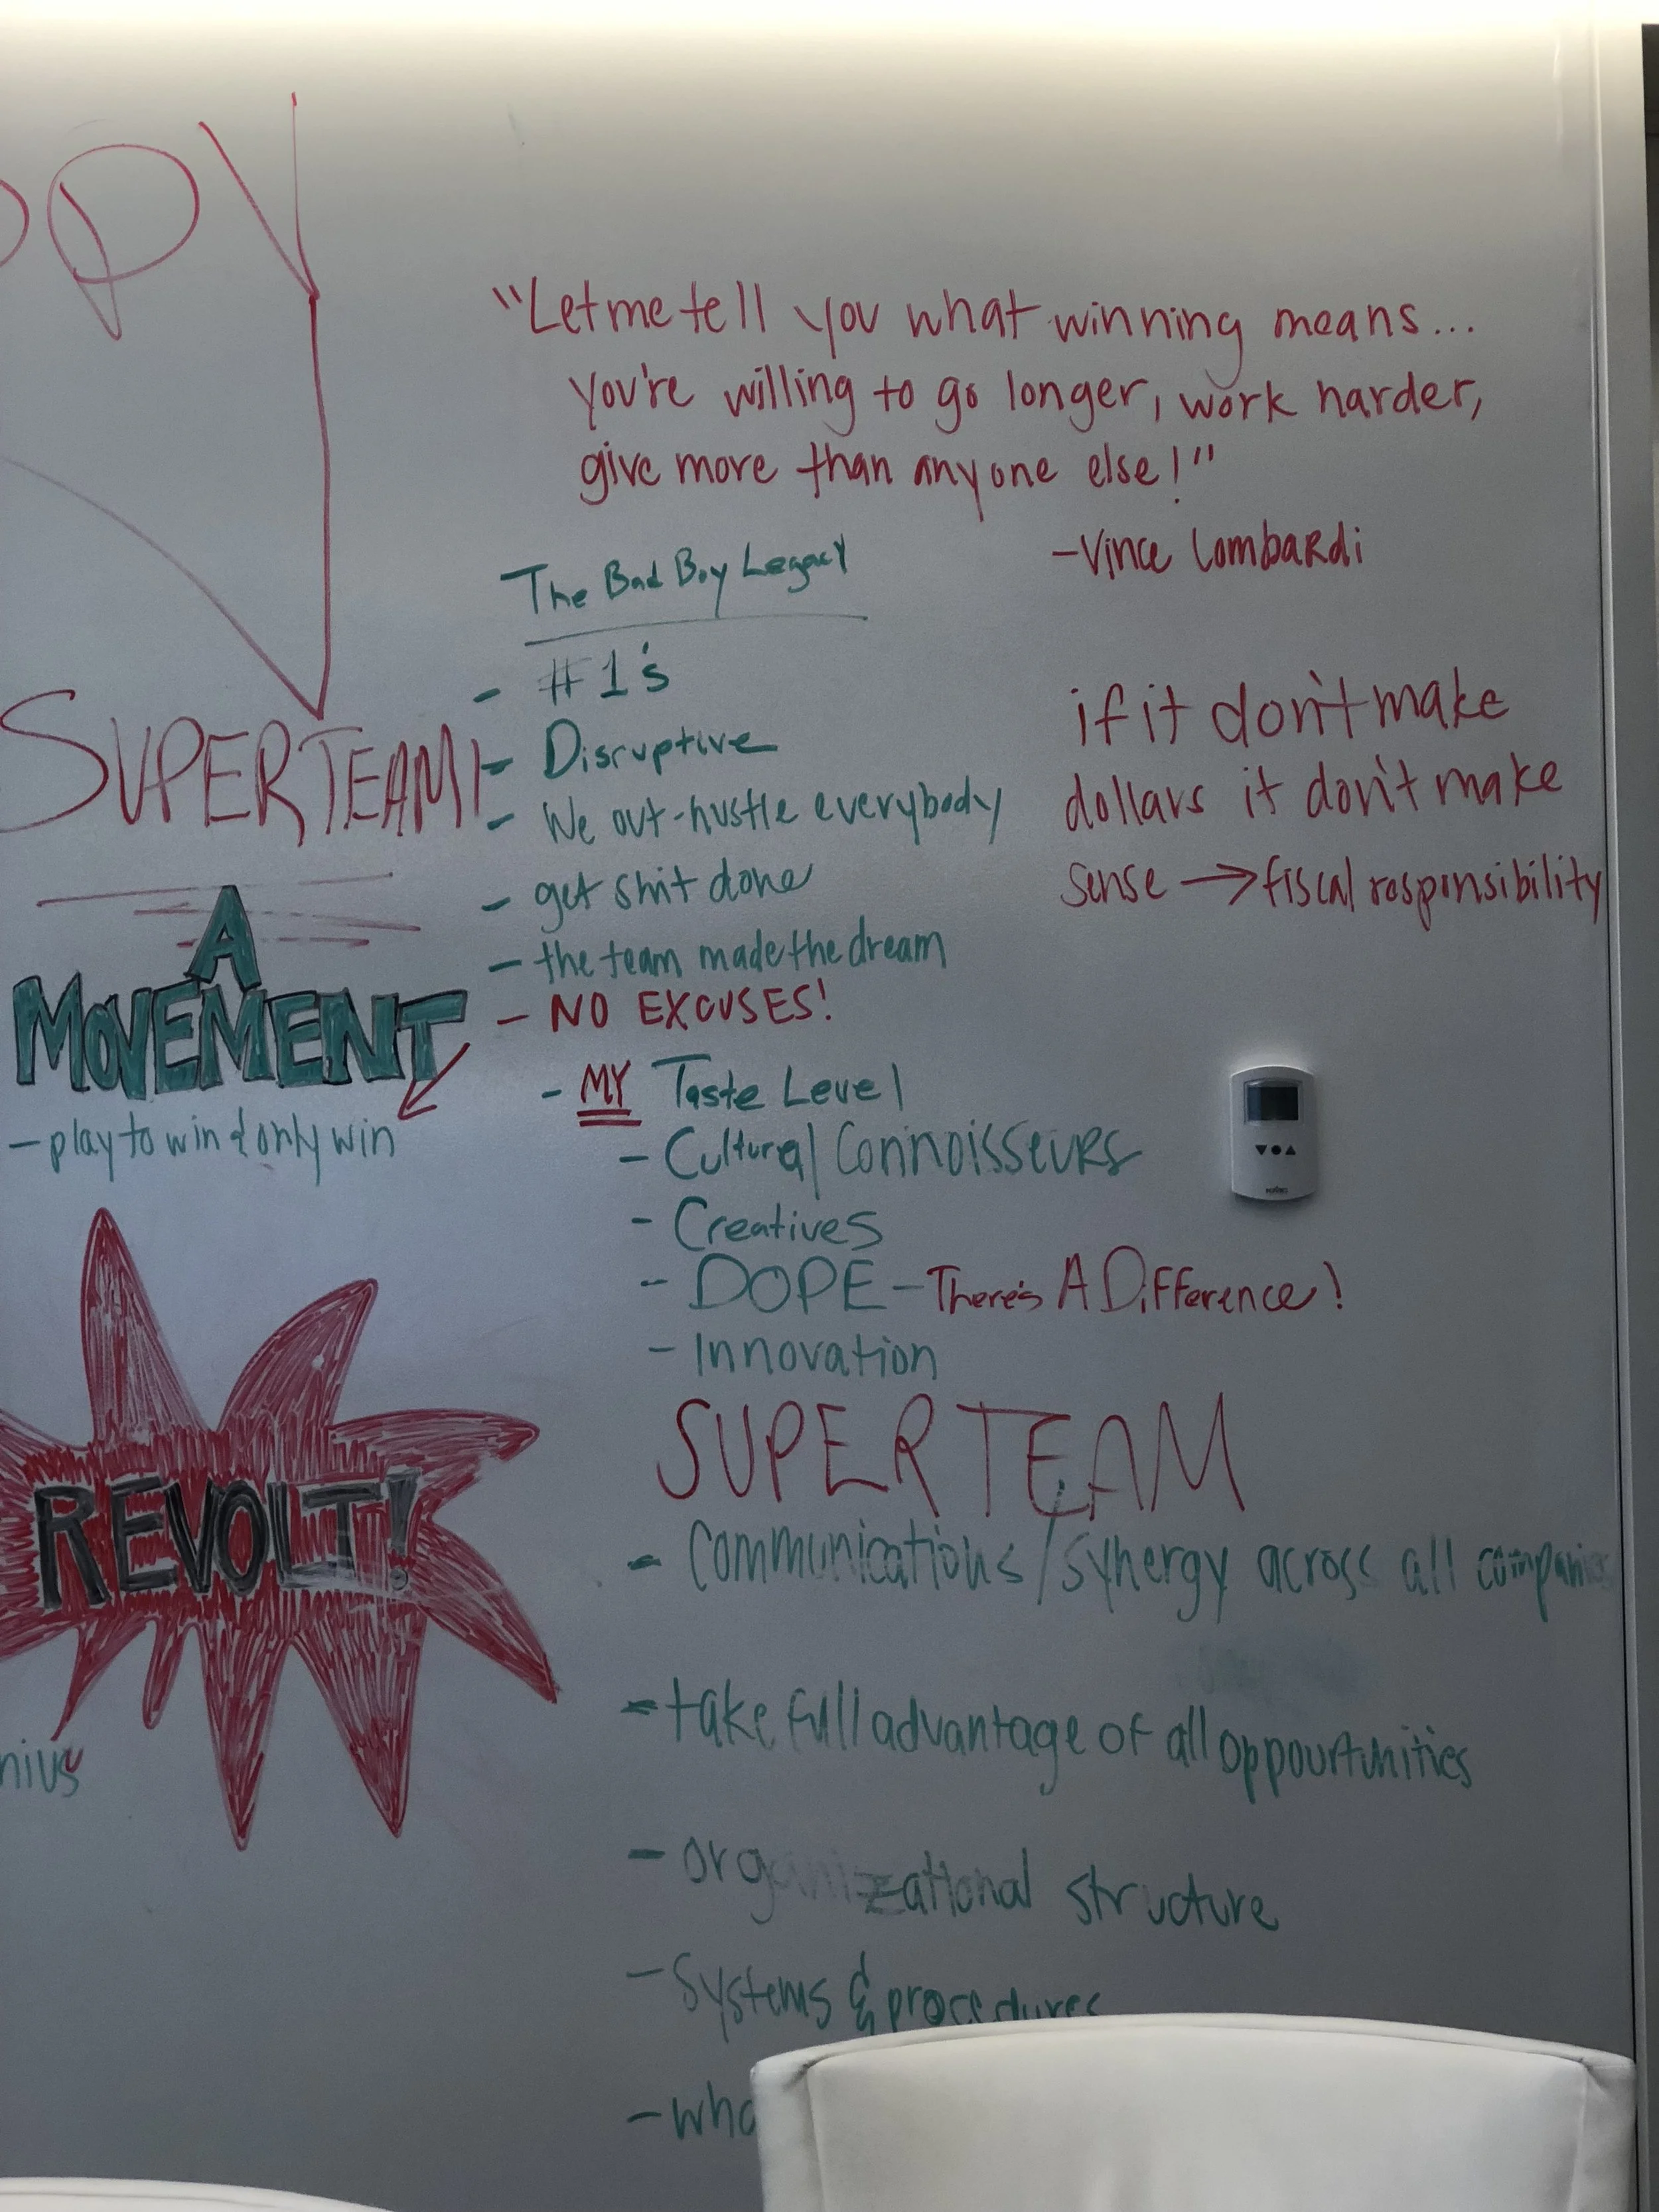 PPY
"Let me tell you what winning means...
you're willing to go longer, work harder,
give more than anyone else!"
-Vince Lombardi
The Bad Boy Legacy
- #1's
- Disruptive
- We out-hustle everybody
- get shit done
- the team made the dream
- NO EXCUSES!
- MY Taste Level
- Cultural Connoisseurs
- Creatives
- DOPE - There's A Difference!
- Innovation
if it don't make
dollars it don't make
sense → fiscal responsibility
SUPERTEAM!
A
MOVEMENT
- play to win & only win
REVOLT!
nius
SUPERTEAM
- Communications/synergy across all companies
- take full advantage of all oppourtunities
- organizational structure
- Systems & procedures